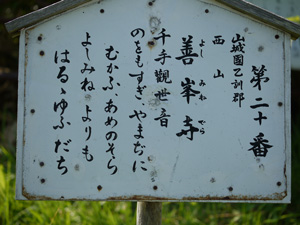 第二十番
山城國乙訓郡
西山
善峯寺
よしみねでら
千手觀世音
のをもすぎ、やまぢに
むかふ、あめのそら
よしみね、よりも
はるゝゆふだち